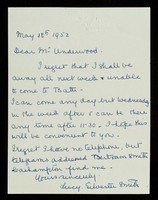 May 10th 1952
Dear Mr Underwood.
I regret that I shall be
away all next week & unable
to come to Bath.
I can come any day but Wednesday
in the week after & can be there
any time after 11.30 - I hope this
will be convenient to you -
I regret I have no telephone, but
telegrams addressed
find me.
Yours sincerely
Lucy